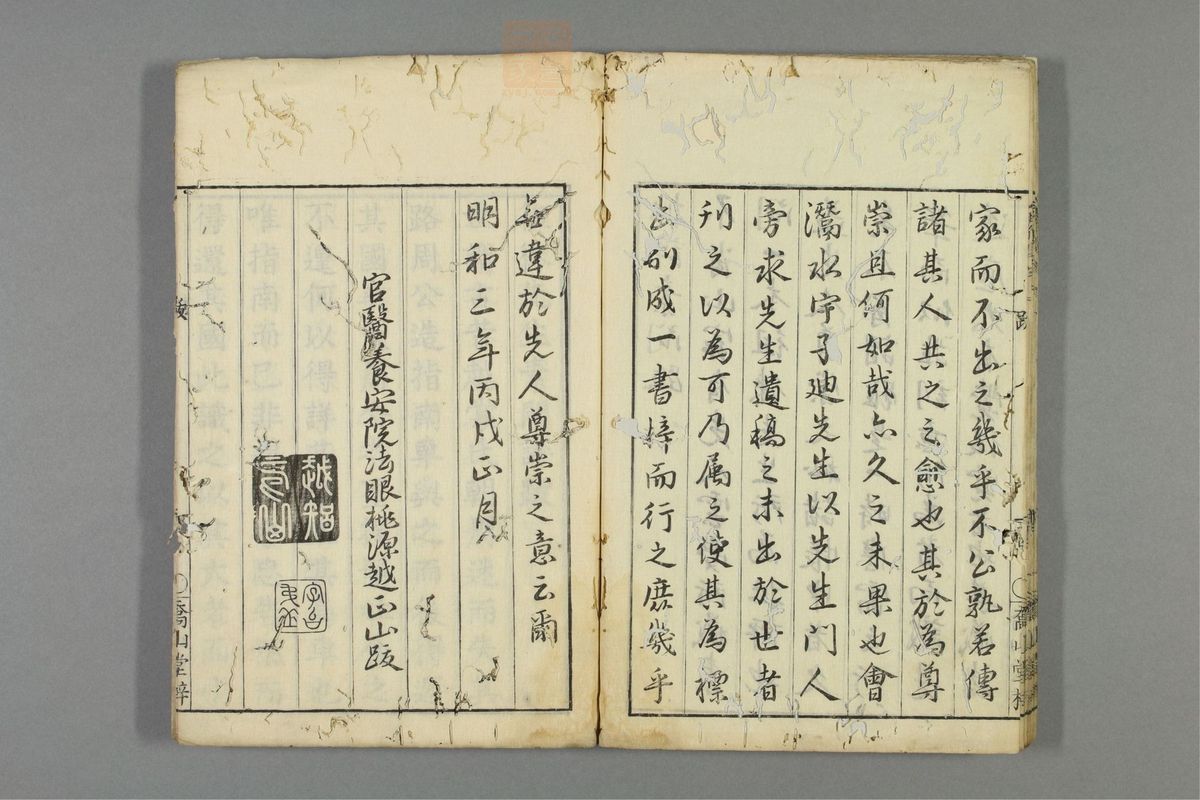 家而不出之幾乎不公孰若傳
諸其人共之之愈也其於為尊
崇且何如哉亦久之未果也會
灊水宇子廸先生以先生門人
旁求先生遺稿之未出於世者
刊之以為可乃属之使其為標
出刖成一書梓而行之庶幾乎
無違於先人尊崇之意云爾
明和三年丙戌正月
官醫養安院法眼桃源越正山跋
越智
正山
跋
喬山堂梓